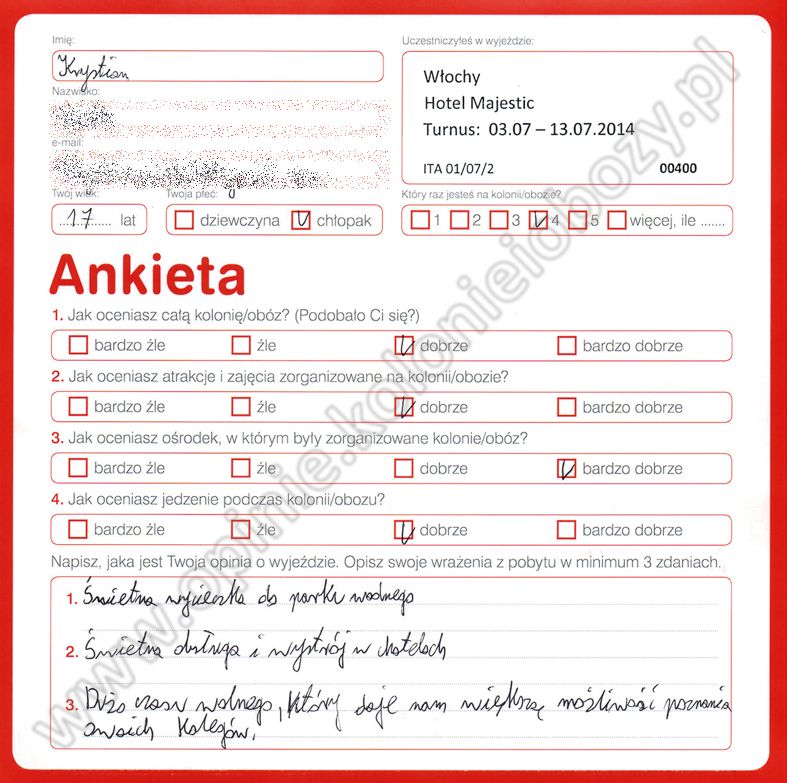 Imię:
Krystian
Uczestniczyłeś w wyjeździe:
Włochy
Hotel Majestic
Turnus: 03.07 – 13.07.2014
ITA 01/07/2 00400
Nazwisko:
e-mail:
Twój wiek:
17 lat
Twoja płeć:
dziewczyna chłopak
Który raz jesteś na kolonii/obozie?
1 2 3 4 5 więcej, ile .......
Ankieta
1. Jak oceniasz całą kolonię/obóz? (Podobało Ci się?)
bardzo źle źle dobrze bardzo dobrze
2. Jak oceniasz atrakcje i zajęcia zorganizowane na kolonii/obozie?
bardzo źle źle dobrze bardzo dobrze
3. Jak oceniasz ośrodek, w którym były zorganizowane kolonie/obóz?
bardzo źle źle dobrze bardzo dobrze
4. Jak oceniasz jedzenie podczas kolonii/obozu?
bardzo źle źle dobrze bardzo dobrze
Napisz, jaka jest Twoja opinia o wyjeździe. Opisz swoje wrażenia z pobytu w minimum 3 zdaniach.
1. Świetna wycieczka do parku wodnego
2. Świetna obsługa i wystrój w hotelach
3. Dużo czasu wolnego, który daje nam większą możliwość poznania
swoich kolegów.
www.opinie.kolonieiobozy.pl